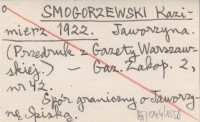 SMOGORZEWSKI Kazi-
mierz 1922. Jaworzyna.
(Przedruk z Gazety Warszaw-
skiej.) – Gaz. Zakop. 2,
nr 42.
Spór graniczny o Jaworzy-
nę Spiską.